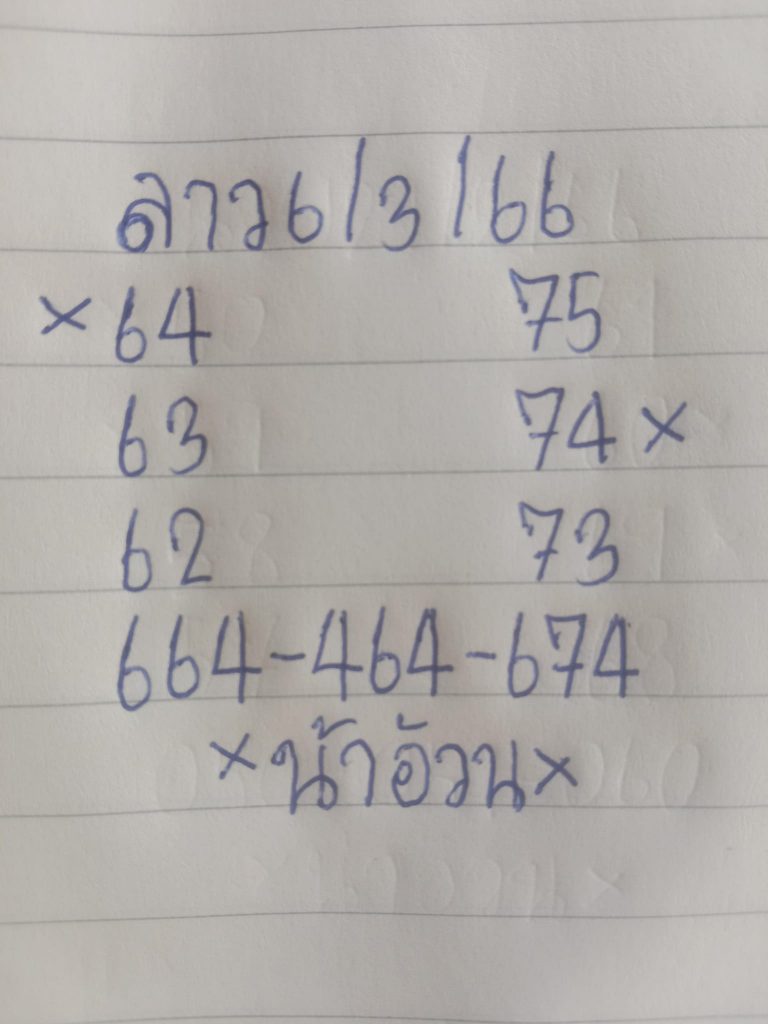 ลาว6/3/66
×64 75
63 74×
62 73
664-464-674
×น้าอ้วน×